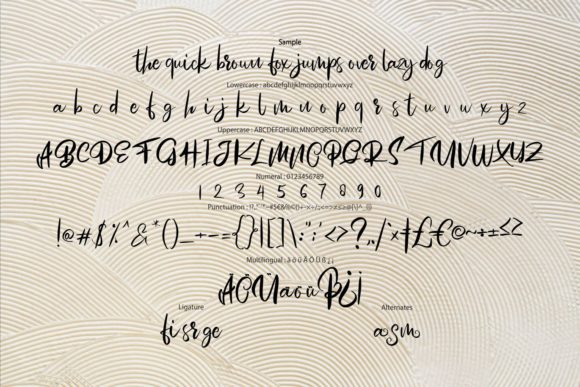 Sample
the quick brown fox jumps over lazy dog
Lowercase : abcdefghijklmnopqrstuvwxyz
a b c d e f g h i j k l m n o p q r s t u v w x y z
Uppercase : ABCDEFGHIJKLMNOPQRSTUVWXYZ
ABCDEFGHIJKLMNOPQRSTUVWXYZ
Numeral : 0123456789
1 2 3 4 5 6 7 8 9 0
Multilingual : ä ö ü Ä Ö Ü ß ¿ ¡
ÄÖÜäöüß¿¡
Ligature
fi sr ge
Alternates
a s m